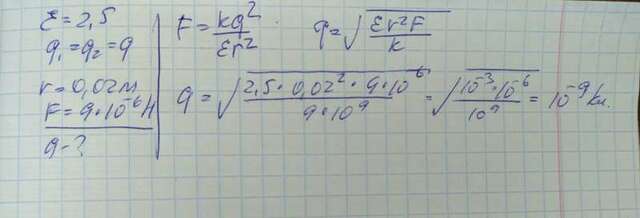 ε = 2,5
q₁ = q₂ = q
r = 0,02 м
F = 9·10⁻⁶ Н
q - ?
F = kq²/εr²   q = √(εr²F/k)
q = √(2,5·0,02²·9·10⁻⁶/9·10⁹) = √(10⁻³·10⁻⁶/10⁹) = 10⁻⁹ Кл.